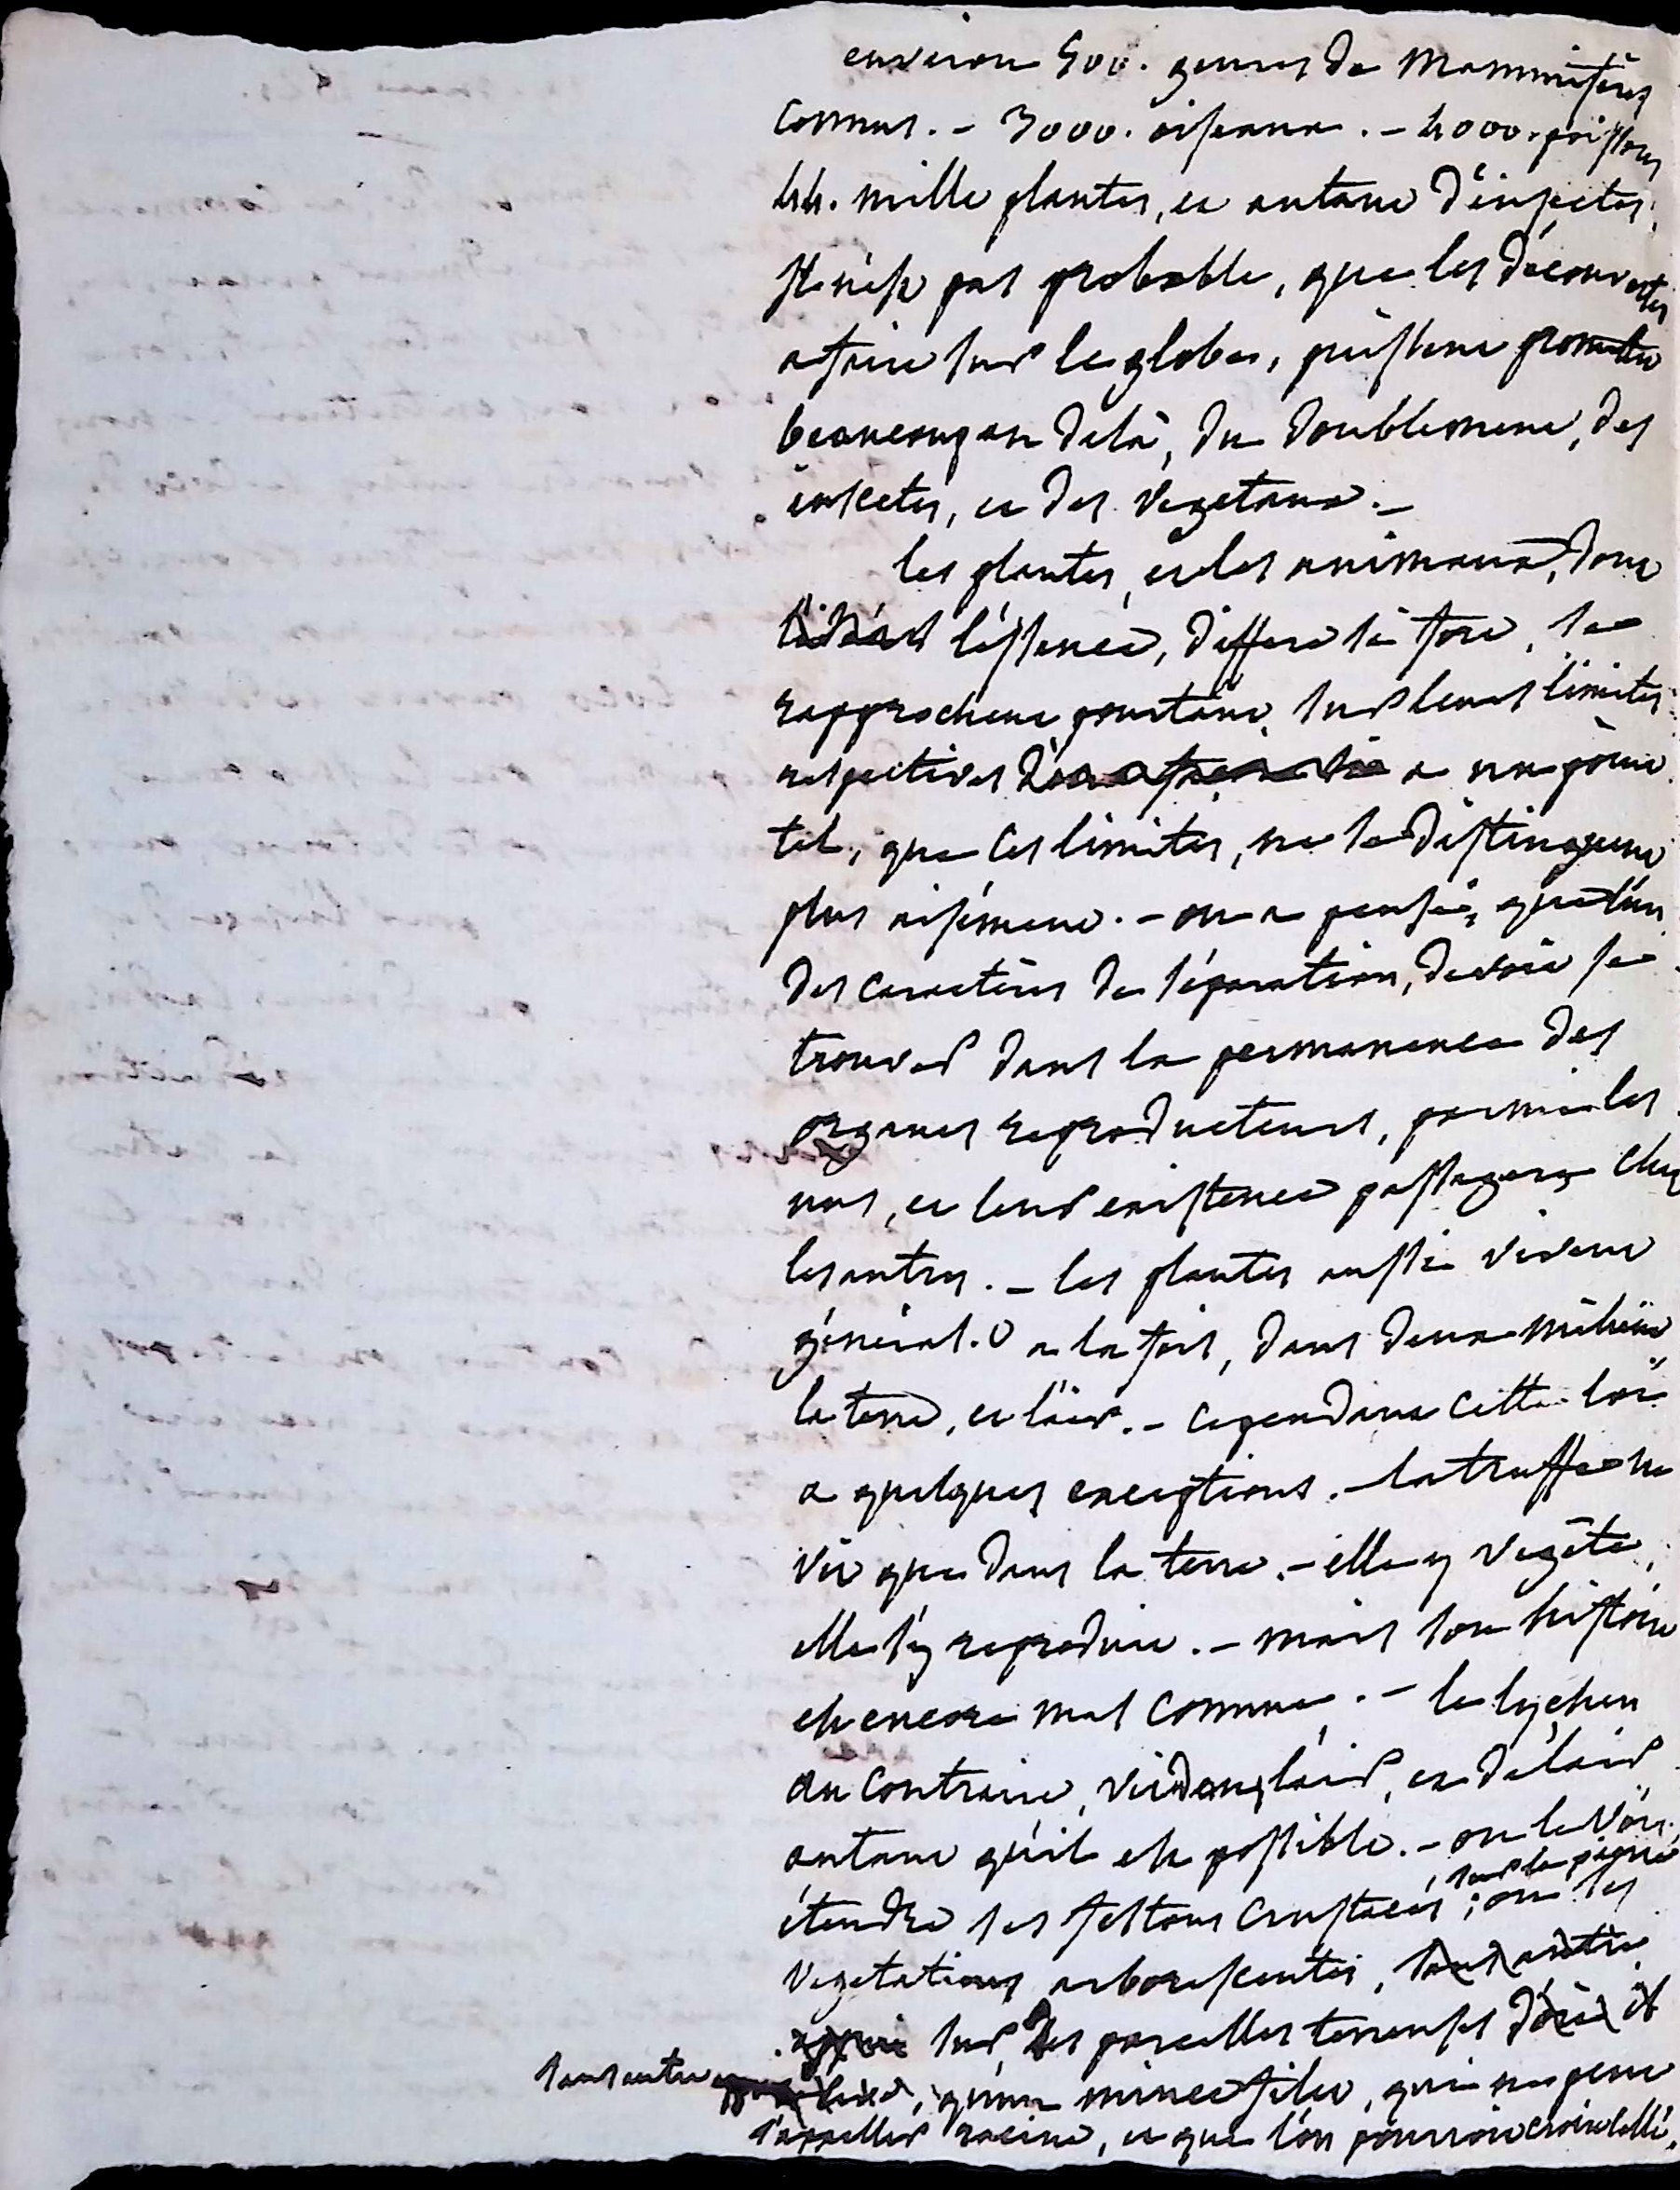 environ 500. genres de Mammifères
connus. - 3000. oiseaux. - 4000. poissons
44. mille plantes, et autant d'insectes.
Il n'est pas probable, que les découvertes
a faire sur le globe, puissent promettre
beaucoup au delà, du doublement, des
insectes, et des vegetaux. -
les plantes, et les animaux, dont
l'essence, differe si fort, se
rapprochent pourtant, sur leurs limites
respectives a un point
tel, que ces limites, ne se distinguent
plus aisément. - on a pensé, que l'un
des caractères de séparation, devoit se
trouver dans la permanence des
organes reproducteurs, parmi les
uns, et leur existence passagere chez
les autres. - les plantes aussi vivent
général.t a la fois, dans deux milieux
la terre, et l'air. - cependant cette loi
a quelques exceptions. - la truffe ne
vit que dans la terre. - elle y végète,
elle s'y reproduit. - mais son histoire
est encore mal connue. - le lychen
au contraire, vit dans l'air, et de l'air
autant qu'il est possible. - on le voit
étendre ses festons crustacés, sur la pierre ; ou ses
vegetations arborescentes, sans autre
appui sur des parcelles terreuses d'où il
sans autre lien, qu'un mince filet, qui ne peut
s'appeller racine, et que l'on pourroit croire collé.